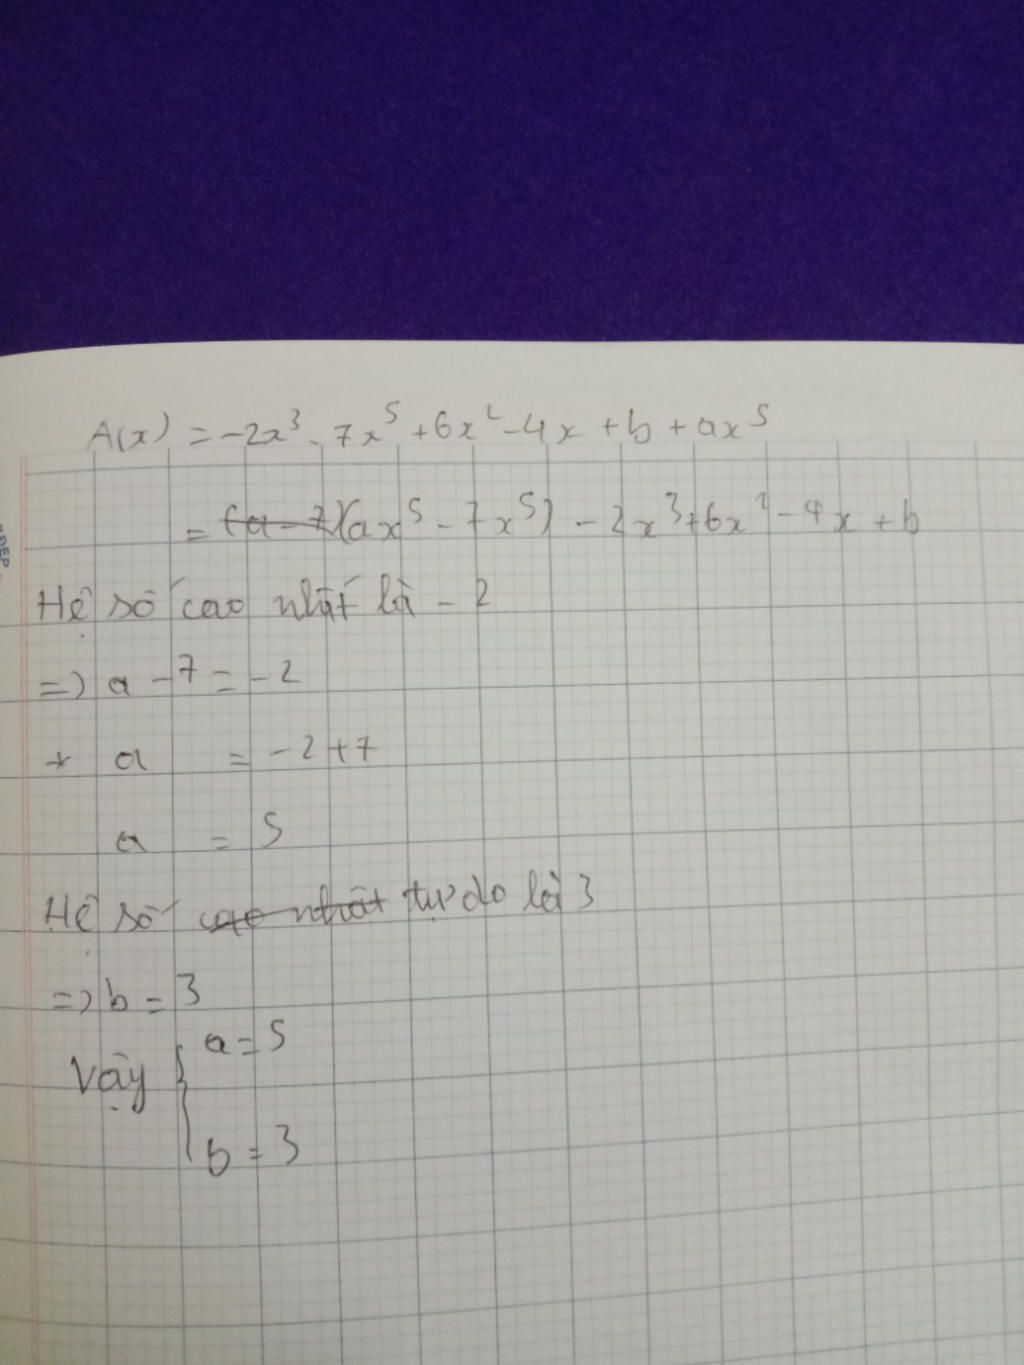 A(x) = -2x³ - 7x⁵ + 6x² - 4x + b + ax⁵
= (a - 7)(ax⁵ - 7x⁵) - 2x³ + 6x² - 4x + b
Hệ số cao nhất là - 2
=> a - 7 = - 2
* a = - 2 + 7
a = 5
Hệ số cao nhất tự do là 3
=> b = 3
Vậy { a = 5
b = 3